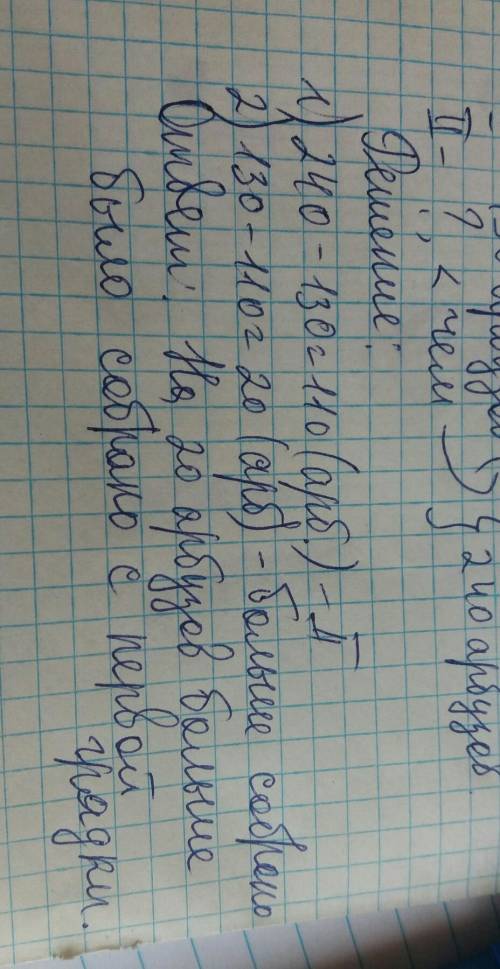 130 арбузов
II - ?, < чем } 240 арбузов
Решение:
1) 240 - 130 = 110 (арб.) - II
2) 130 - 110 = 20 (арб) - больше собрано
Ответ: На 20 арбузов больше
было собрано с первой
грядки.